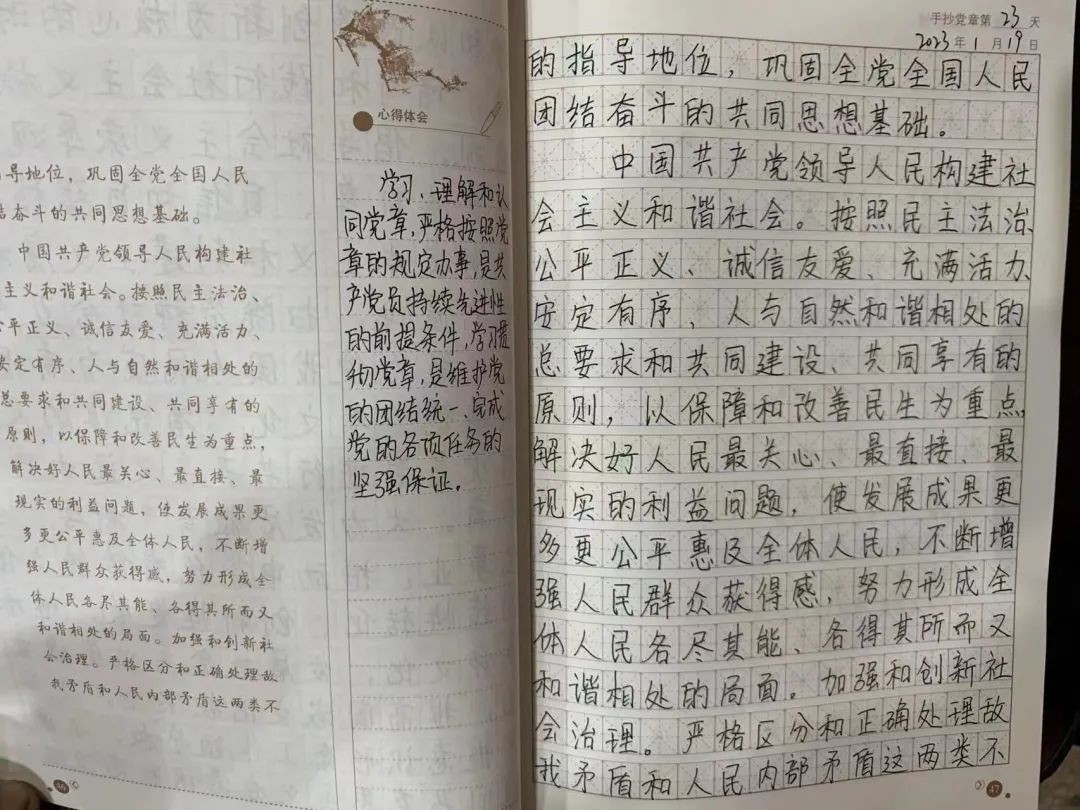 导地位，巩固全党全国人民
结奋斗的共同思想基础。
中国共产党领导人民构建社
主义和谐社会。按照民主法治、
公平正义、诚信友爱、充满活力、
安定有序、人与自然和谐相处的
总要求和共同建设、共同享有的
原则，以保障和改善民生为重点，
解决好人民最关心、最直接、最
现实的利益问题，使发展成果更
多更公平惠及全体人民，不断增
强人民群众获得感，努力形成全
体人民各尽其能、各得其所而又
和谐相处的局面。加强和创新社
会治理。严格区分和正确处理敌
我矛盾和人民内部矛盾这两类不
46
心得体会
学习、理解和认
同党章，严格按照党
章的规定办事，是共
产党员持续先进性
的前提条件，学习贯
彻党章，是维护党
的团结统一、完成
党的各项任务的
坚强保证。
手抄党章第23天
2023年1月19日
的指导地位，巩固全党全国人民
团结奋斗的共同思想基础。
中国共产党领导人民构建社
会主义和谐社会。按照民主法治、
公平正义、诚信友爱、充满活力、
安定有序、人与自然和谐相处的
总要求和共同建设、共同享有的
原则，以保障和改善民生为重点，
解决好人民最关心、最直接、最
现实的利益问题，使发展成果更
多更公平惠及全体人民，不断增
强人民群众获得感，努力形成全
体人民各尽其能、各得其所而又
和谐相处的局面。加强和创新社
会治理。严格区分和正确处理敌
我矛盾和人民内部矛盾这两类不
47